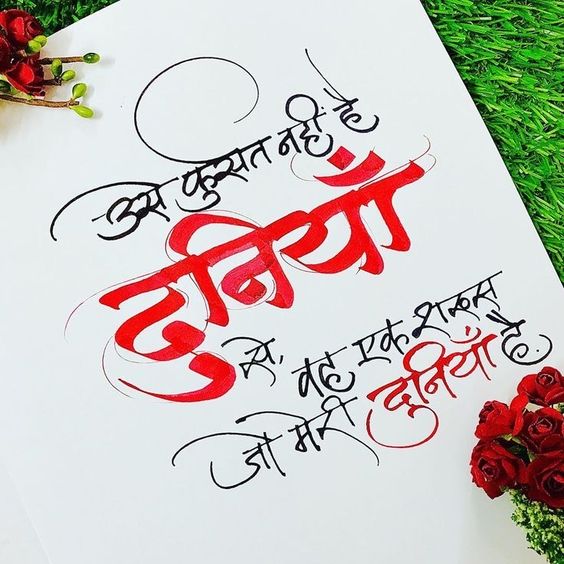 उसे फुर्सत नहीं है
दुनियाँ
से, वह एक शख्स
जो मेरी दुनियाँ है.